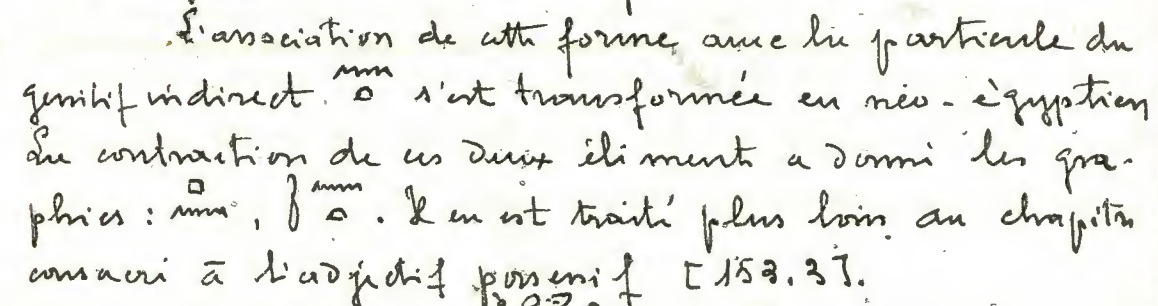 L'association de cette forme avec la particule du
génitif indirect 𓈖𓏏 s'est transformée en néo-égyptien
La contraction de ces deux éléments a donné les gra-
phies : 𓊪𓈖, 𓋴𓈖𓏏. Il en est traité plus loin au chapitre
consacré à l'adjectif possessif [153.3].